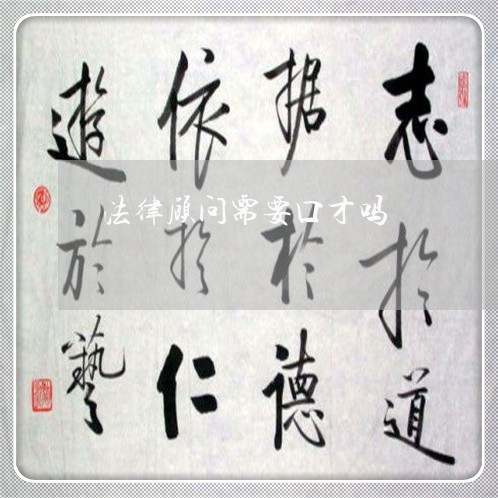 志於道
据於德
依於仁
遊於藝
法律顾问需要口才吗